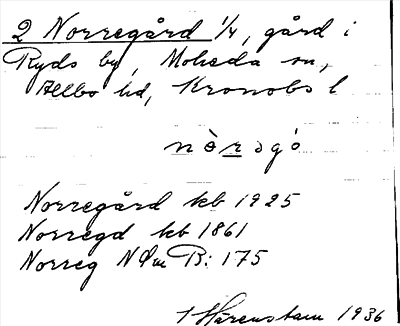 2 Norregård 1/4, gård i
Ryds by, Moheda sn,
Allbo hd, Kronobs l
nòrəgó
Norregård kb 1925
Norregd kb 1861
Norreg NOm B: 175
1 Hårenstam 1936